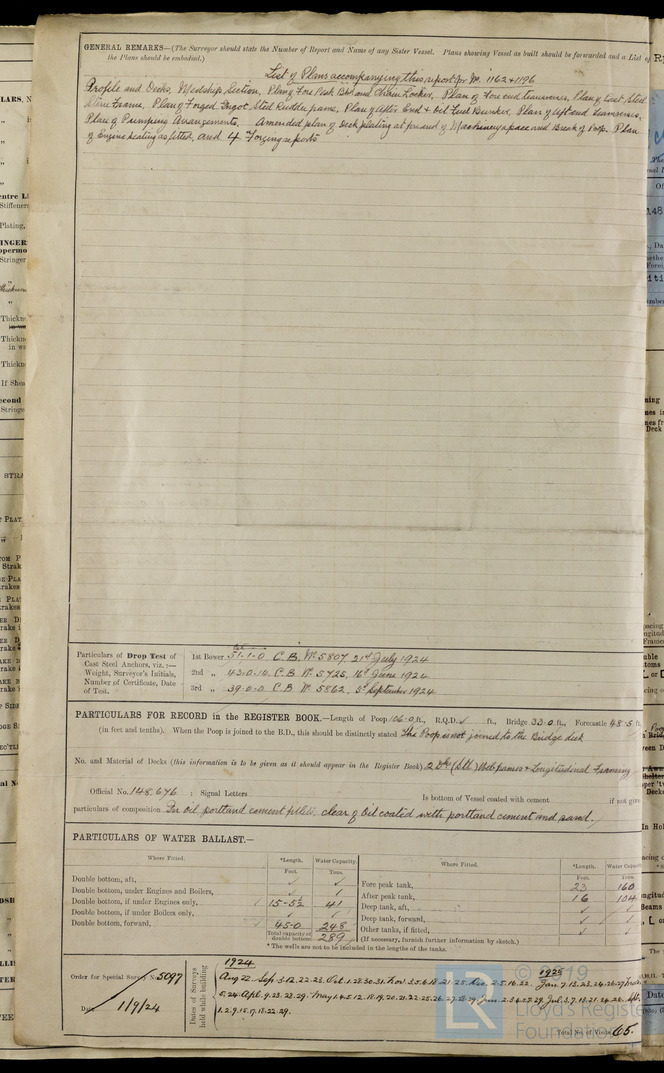 GENERAL REMARKS—(The Surveyor should state the Number of Report and Name of any Sister Vessel. Plans showing Vessel as built should be forwarded and a List of
the Plans should be embodied.)
List of Plans accompanying this report for No. 1162 & 1196
Profile and Decks, Midship Section, Plan of Fore Peak Bhd and Chain Locker, Plan of Fore end transverses, Plan of Cast Steel
Stern Frame, Plan of Forged Ingot Steel Rudder frame, Plan of After End & Oil Fuel Bunker, Plan of Aft end transverses,
Plan of Pumping Arrangements, Amended plan of Deck plating at for. end of Machinery space and Break of Poop. Plan
of Engine seating as fitted, and 4 Forging reports
Particulars of Drop Test of
Cast Steel Anchors, viz.:—
Weight, Surveyor's Initials,
Number of Certificate, Date
of Test.
1st Bower 51-1-0 C.B. No. 5807, 21st July 1924
2nd „ 43-0-14 C.B. No. 5725, 16th June 1924
3rd „ 39-0-0 C.B. No. 5862, 5th September 1924
PARTICULARS FOR RECORD in the REGISTER BOOK.—Length of Poop 106.0 ft., R.Q.D. ✓ ft., Bridge 33.0 ft., Forecastle 48.5 ft.
(in feet and tenths). When the Poop is joined to the B.D., this should be distinctly stated The Poop is not joined to the Bridge deck
No. and Material of Decks (this information is to be given as it should appear in the Register Book) 2 Dks (Stl) Web frames & Longitudinal Framing
Official No. 148,676 ; Signal Letters Is bottom of Vessel coated with cement if not give
particulars of composition For oil, portland cement fillets, clear of Oil coated with portland cement and sand.
PARTICULARS OF WATER BALLAST.—
Where Fitted. *Length. Water Capacity. Where Fitted. *Length. Water Capacity.
Feet. Tons. Feet. Tons.
Double bottom, aft, ✓ ✓ Fore peak tank, 23 160
Double bottom, under Engines and Boilers, ✓ ✓ After peak tank, 16 104
Double bottom, if under Engines only, 15-52 41 Deep tank, aft, ✓ ✓
Double bottom, if under Boilers only, ✓ ✓ Deep tank, forward, ✓ ✓
Double bottom, forward, 45-0 248 Other tanks, if fitted, ✓ ✓
Total capacity of double bottom 289 (If necessary, furnish further information by sketch.)
* The wells are not to be included in the lengths of the tanks.
Order for Special Survey No. 5097
Date 1/9/24
Dates of Surveys held while building
1924 1925
Aug. 22. Sep. 3.12.22.23. Oct. 1.28.30.31. Nov. 3.5.6.18.21.25. Dec. 2.5.16.22. Jan. 7.13.23.24.26.27.
5.24. Apl. 9.23.28.29. May 1.4.5.12.18.19.20.21.22.25.26.27.28.29. Jun. 2.3.4.27.29. Jul. 3.7.13.21.24.28.
1.2.9.15.17.18.22.29.
Total No. of Visits 65.
© 2019
Lloyd's Register
Foundation
LR